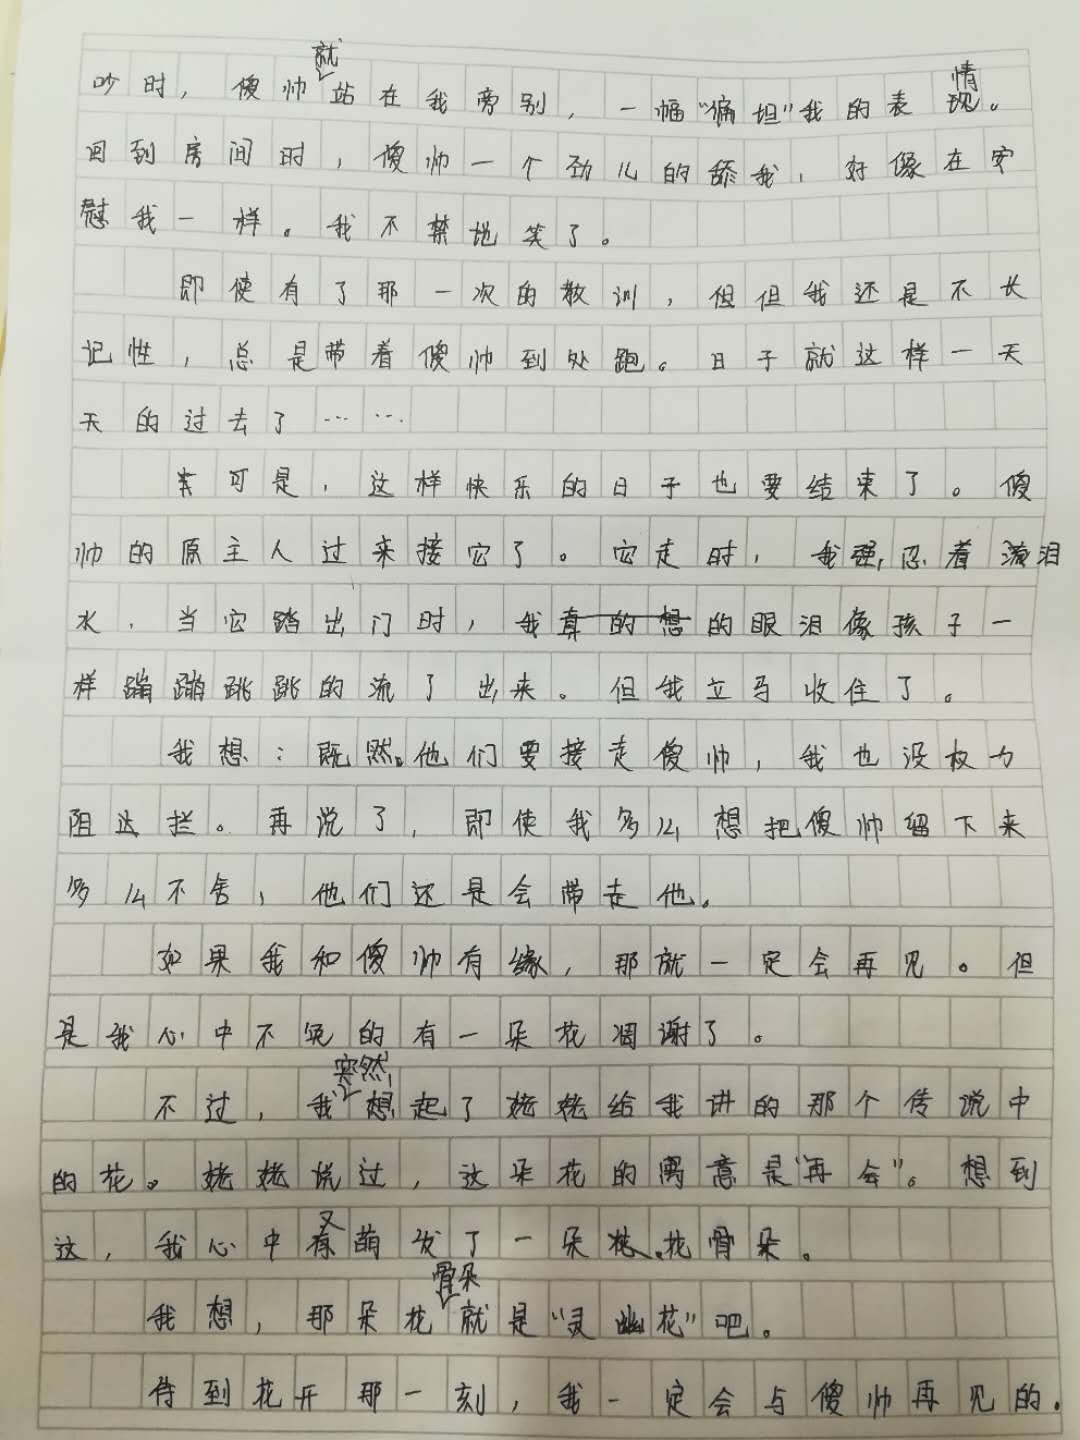 吵时，傻帅就站在我旁别，一幅“偏坦”我的表情。
回到房间时，傻帅一个劲儿的舔我，好像在安
慰我一样。我不禁地笑了。
即使有了那一次的教训，但但我还是不长
记性，总是带着傻帅到处跑。日子就这样一天
天的过去了……
可是，这样快乐的日子也要结束了。傻
帅的原主人过来接它了。它走时，我强忍着流泪
水，当它踏出门时，我的眼泪像孩子一
样蹦蹦跳跳的流了出来。但我立马收住了。
我想：既然他们要接走傻帅，我也没权力
阻拦。再说了，即使我多么想把傻帅留下来
多么不舍，他们还是会带走他。
如果我和傻帅有缘，那就一定会再见。但
是我心中不免的有一朵花凋谢了。
不过，我突然想起了姥姥给我讲的那个传说中
的花。姥姥说过，这朵花的寓意是“再会”。想到
这，我心中又萌发了一朵花骨朵。
我想，那朵花骨朵就是“灵幽花”吧。
待到花开那一刻，我一定会与傻帅再见的。